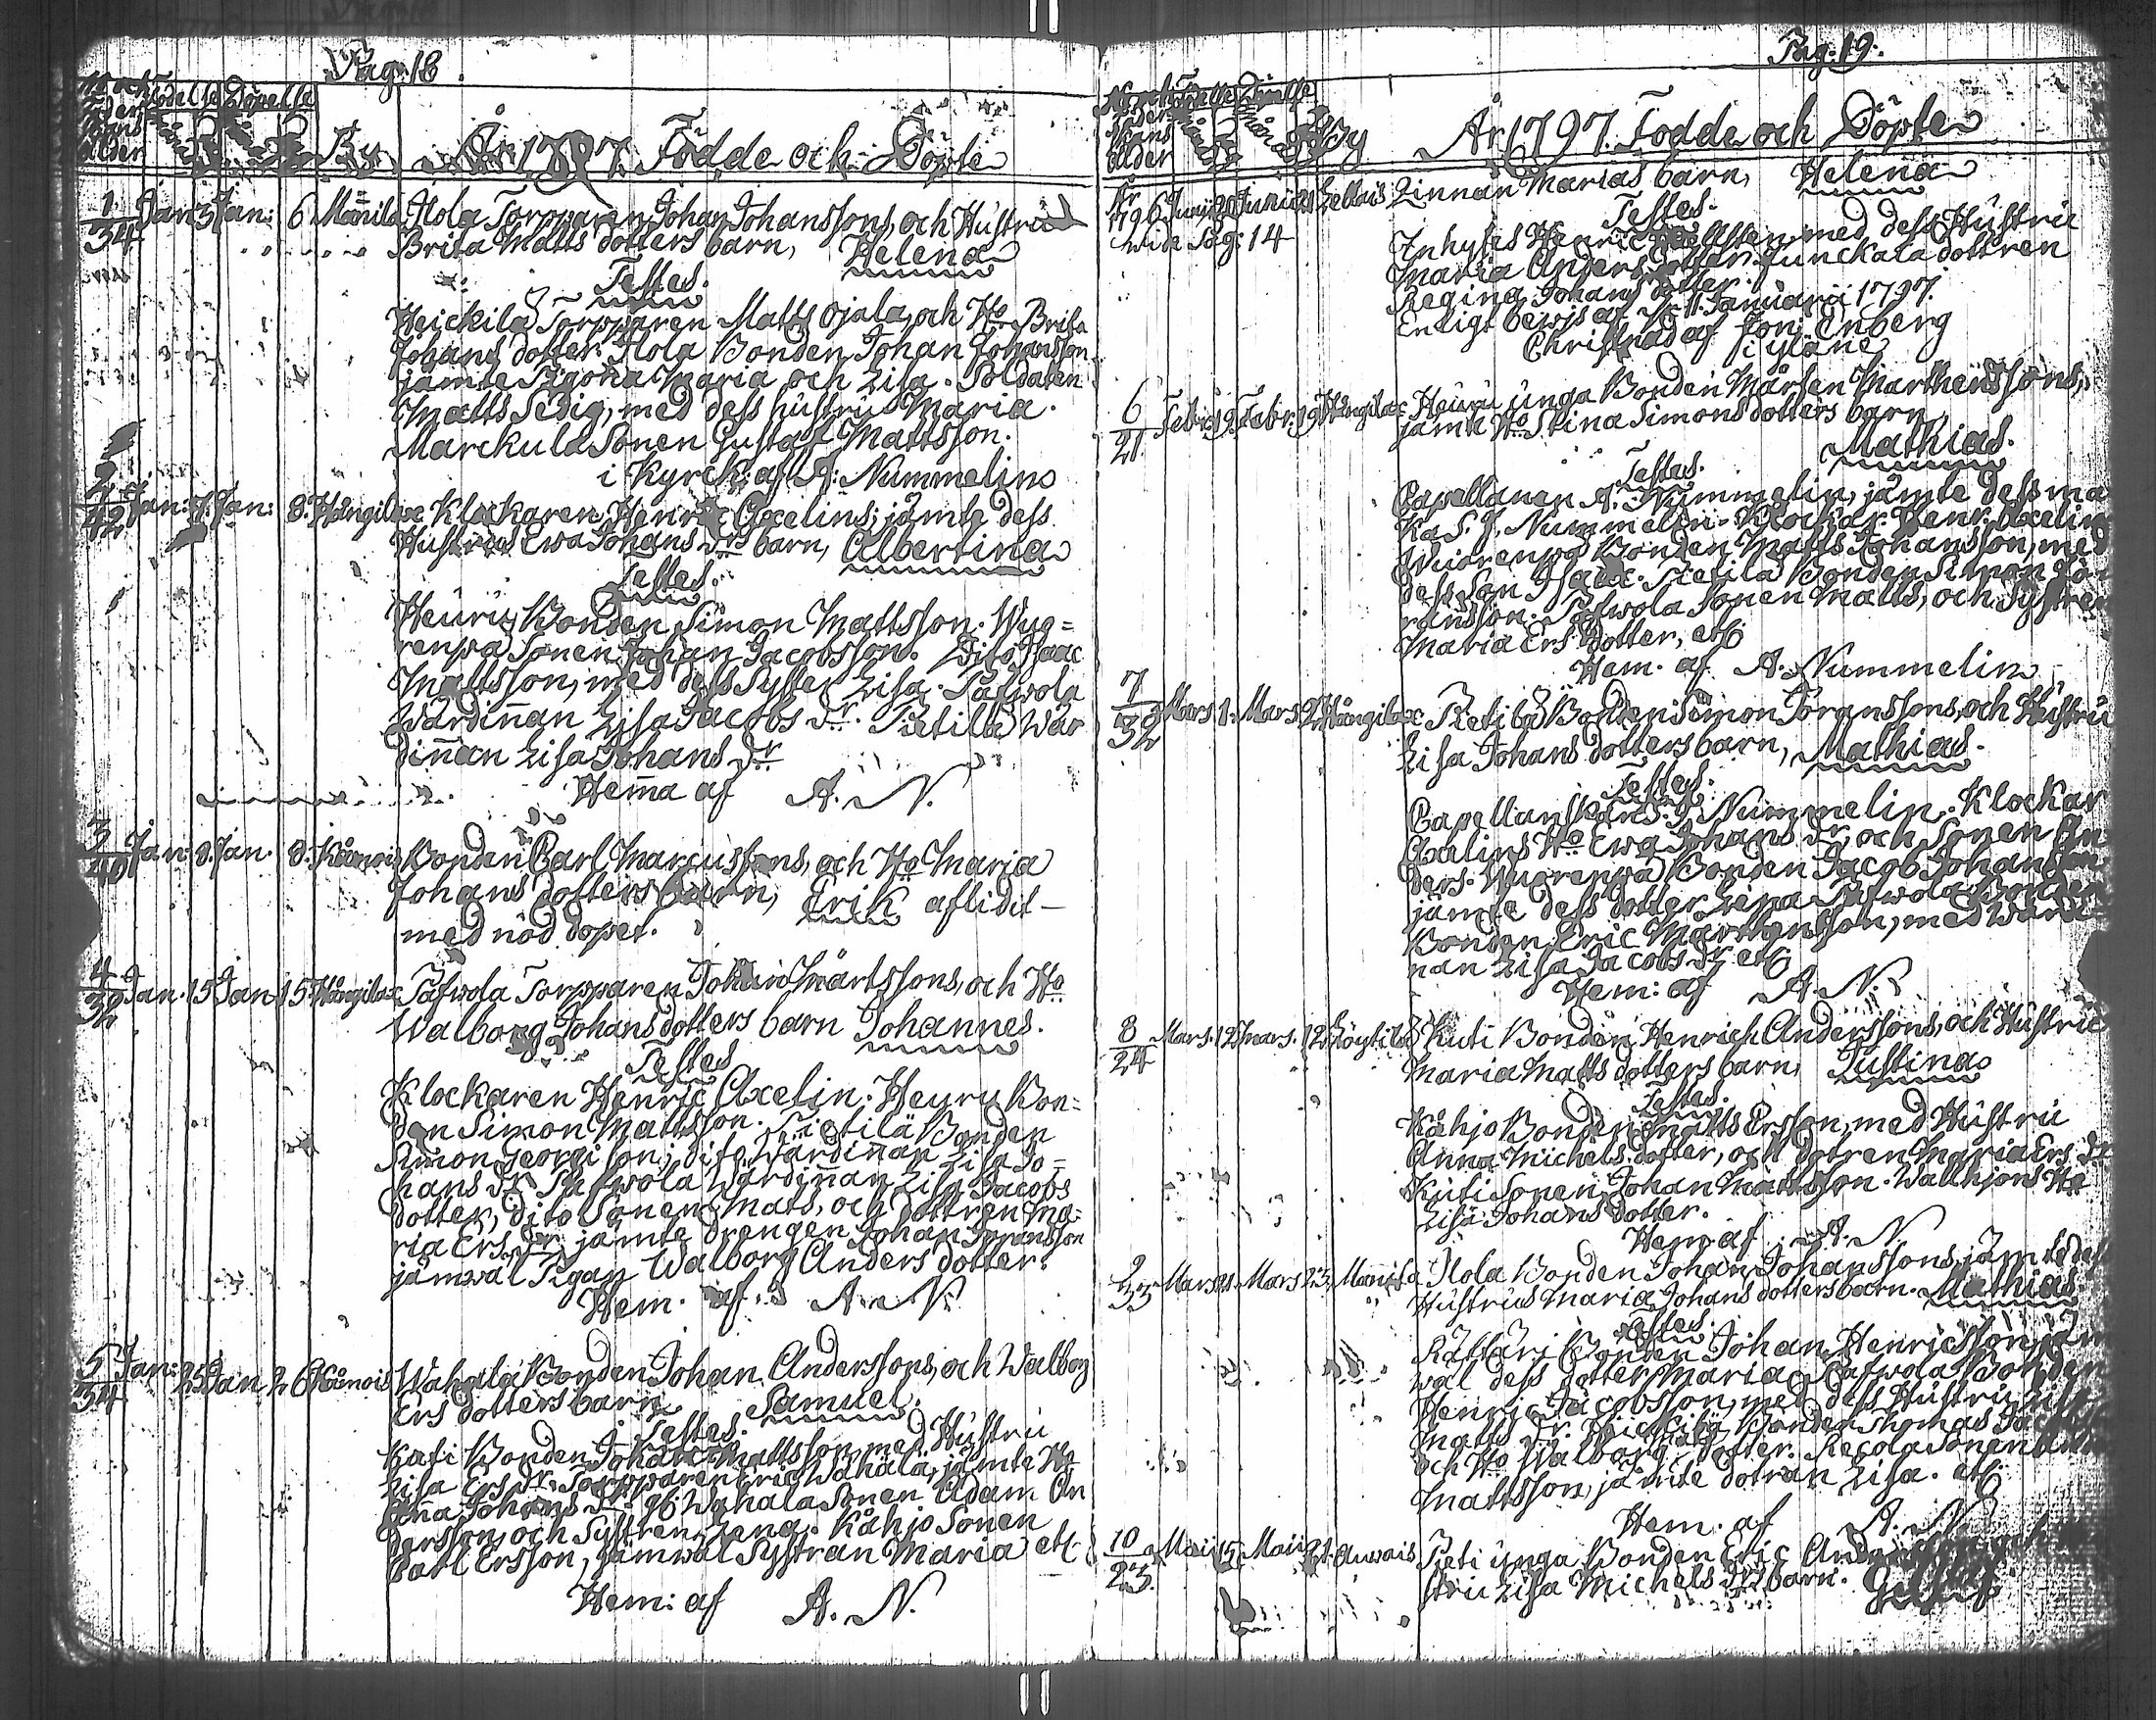 Pag: 18.
N:o och Föder skans ålder Födelse Döpelse
By År 1797. Födde och Döpte
1/34 Jan: 5 Jan: 6 Mannila Ilola Torpparen Johan Johanssons, och Hustru
Brita Matts dotters barn, Helena
Testes.
Heickilä Torpparen Matts Ojala, och H:o Brita
Johans dotter. Ilola Bonden Johan Johansson
jämte Pigorna Maria och Lisa. Soldaten
Matts Sedig, med dess hustru Maria.
Marckula Sonen Gustaf Mattsson.
i Kyrck: af A: Nummelin
2/42 Jan: 7. Jan: 8. Hångilax Klockaren Henric Axelins, jämte dess
Hustrus Ewa Johans d:rs barn, Albertina
Testes.
Heuru Bonden Simon Mattsson. Wuo=
renpä Sonen Johan Jacobsson. Dito Isaac
Mattsson, med dess Syster Lisa. Pafwola
Wärdinnan Lisa Jacobs d:r. Pietilä Wär
dinnan Lisa Johans d:r
Hemma af A. N.
3/40 Jan: 8. Jan. 8. Kånois Bonden Carl Marcussons, och H:o Maria
Johans dotters barn, Erik aflidit
med nöd dopet.
4/32 Jan. 15 Jan. 15. Hångilax Pafwola Torpparen Johan Mårtssons, och H:o
Walborg Johans dotters barn Johannes.
Testes
Klockaren Henric Axelin. Heuru Bon=
den Simon Mattsson. Pietilä Bonden
Simon Georgi son, dito Wärdinnan Lisa Jo=
hans d:r. Pafwola Wärdinnan Lisa Jacobs
dotter, dito Sonen Mats, och dottren Ma=
ria Ers d:r, jämte drengen Johan Joransson
jämwäl Pigan Walborg Anders dotter.
Hem. af A. N.
5/34 Jan: 25 Jan 26 Kånois Wahala Bonden Johan Anderssons, och Walborg
Ers dotters barn Samuel.
Testes.
Kuti Bonden Johan Mattsson med Hustru
Lisa Ers d:r. Torpparen Eric Wahala, jämte H:o
Anna Johans d:r. Wahala Sonen Adam An
dersson, och Systren Lena. Kåhjo Sonen
Carl Ersson, jämwäl Systran Maria etc
Hem: af A. N.
Pag: 19.
N:o och Föder skans ålder Födelse Döpelse
By År 1797. Födde och Döpte
År 1796 Junii 20 Junii Lellais Linnan Marias barn, Helena
wide Pag: 14 Testes.
Inhyses Henric Hellsten med dess Hustru
Maria Anders dotter. Junckala dottren
Regina Johans dotter.
Enligt bewis af d. 11 Januarii 1797.
Christnad af Joh: Enberg
i Yläne
6/21 Febr: 19. Febr. 19 Hångilax Heuru unga Bonden Mårten Marthenssons,
jämte H:o Stina Simons dotters barn
Mathias.
Testes.
Capellanen A. Nummelin, jämte dess ma
ka S. J. Nummelin. Klockar. Henr. Axelin
Wuorenpä Bonden Matts Johansson, med
dess Son Isaac. Pietilä Bonden Simon Jö
ransson. Pafwola Sonen Matts, och Systren
Maria Ers dotter, etc
Hem. af A. Nummelin
7/32 Mars 1. Mars. 2 Hångilax Pietilä Bonden Simon Joranssons, och Hustru
Lisa Johans dotters barn, Mathias.
Testes.
Capellanskan S. J. Nummelin. Klockar
Axelins H:o Ewa Johans d:r, och Sonen An
ders. Wuorenpä Bonden Jacob Johansson
jämte dess dotter Lena. Pafwola Bonden
Bonden Eric Martensson, med Wärdin
nan Lisa Jacobs d:r etc
Hem: af A. N.
8/24 Mars. 12 Mars. 12 Löytilä Kuti Bonden Henrich Anderssons, och Hustru
Maria Matts dotters barn, Justina
Testes.
Kåhjo Bonden Matts Ersson, med Hustru
Anna Michels dotter, och dotren Maria Ers d:r
Kuti Sonen Johan Mattsson. Wallhjons H:o
Lisa Johans dotter.
Hem: af A. N.
9/33 Mars 21. Mars 23. Mannila Ilola Bonden Johan Johanssons, jämte dess
Hustrus Maria Johans dotters barn. Mathias
Testes.
Rättäri Bonden Johan Henricsson, jäm
wäl dess dotter Maria. Pafwola Bonden
Henric Jacobsson, med dess Hustru
Matts d:r. Heickilä Bonden Thomas
och H:o Walborg dotter. Recola Sonen
Mattsson, jämte dotran Lisa. etc
Hem. af A. N.
10/23. Maii 15 Maii 21. Auwais Pieti unga Bonden Eric
stru Lisa Michels d:rs barn.